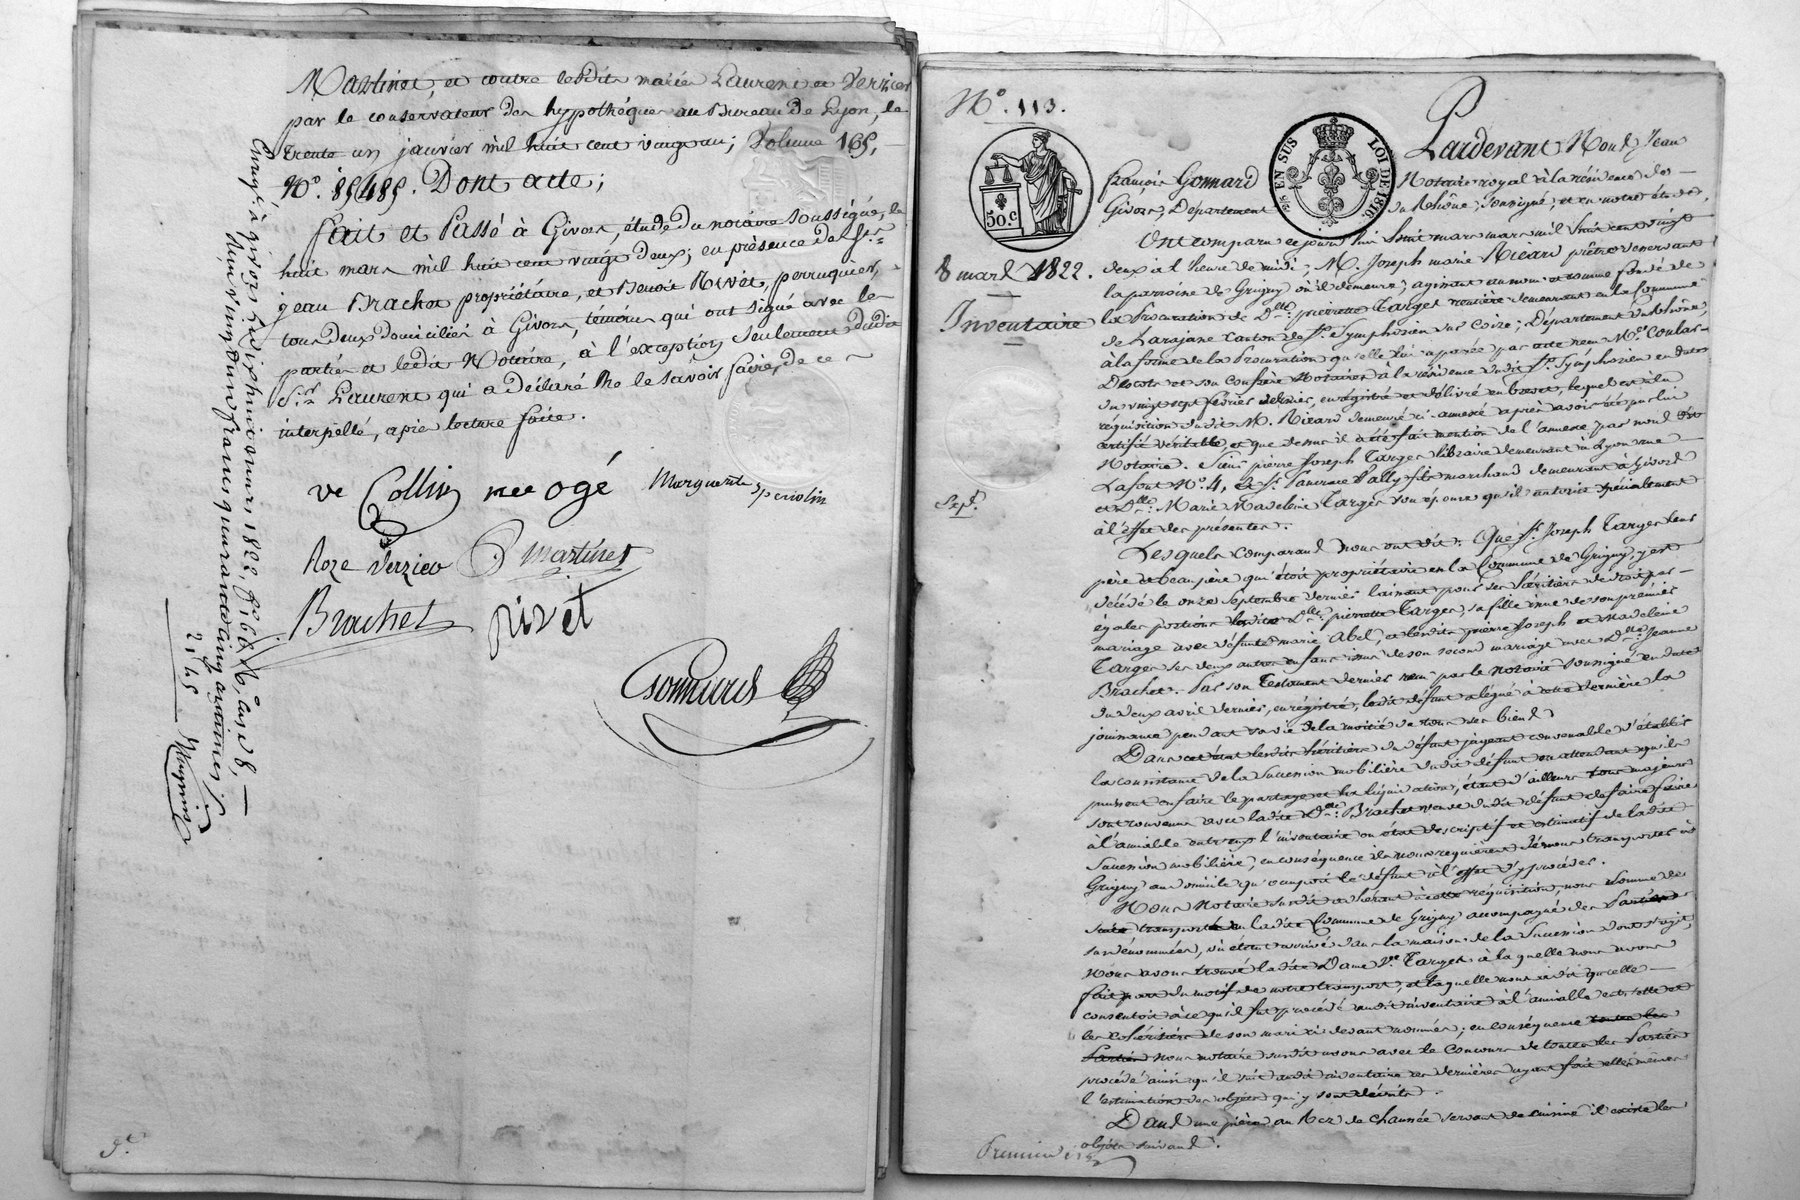 Martinet, et contre lesdits mariés Laurent et Verzier
par le conservateur des hypothèques au Bureau de Lyon, le
trente un janvier mil huit cent vingt un; Volume 165,
N.º 85485. Dont acte;
fait et Passé à Givors, étude du notaire soussigné, le
huit mars mil huit cent vingt deux; en présence de S.rs
jean Brachet propriétaire, et Benoit Rivet, perruquier,
tous deux domiciliés à Givors, témoins qui ont signé avec les
parties et ledit Notaire, à l'exception seulement dudit
S.r Laurent qui a déclaré ne le savoir faire, de ce
interpellé, après lecture faite.
ve Collin née ogé Marguerite periolin
Roze Verzieu Martinet
Brachet rivet
Gonnard
Enreg.é à givors, le dix huit mars 1822, f.º 60 V.º, case 8,
Reçu vingt un francs quarante cinq centimes
21 45
N.º 113.
8 mars 1822.
Inventaire
50 c
EN SUS
LOI DE 1816
Pardevant Nous Jean
françois Gonnard Notaire royal à la résidence de
Givors, Département du Rhône, soussigné, et en notre étude,
Ont comparu ce jourd'hui huit mars mil huit cent vingt
deux à l'heure de midi; M. Joseph marie Ricard prêtre desservant
la paroisse de Grigny où il demeure, agissant au nom et comme fondé de
la procuration de D.lle pierrette Targes rentière demeurant en la Commune
de Larajasse canton de S.t Symphorien sur Coize, Département du Rhône,
à la forme de la Procuration qu'elle lui a passée par acte reçu M.e Coulas
Ducots et son Confrère Notaires à la résidence dudit S.t Symphorien en date
du vingt sept février dernier, enregistré et délivré en brevet, lequel est à la
réquisition dudit M. Ricard demeuré ci annexé après avoir été par lui
certifié véritable et que dessus il a été fait mention de l'annexe par nous dit
Notaire. Sieur pierre Joseph Targes libraire demeurant à Lyon rue
Lafont N.º 4, et S.r Pancrace Vally fils marchand demeurant à Givors
et D.lle Marie Madeleine Targes son épouse qu'il autorise spécialement
à l'effet des présentes.
Lesquels comparans nous ont dit: Que S.r Joseph Targes leur
père et beau père qui étoit propriétaire en la Commune de Grigny, y est
décédé le onze Septembre dernier laissant pour ses héritiers de droit par
égales portions ladite D.lle pierrette Targes, sa fille issue de son premier
mariage avec défunte marie Abel, et lesdits pierre Joseph et Madeleine
Targes ses deux autres enfans issus de son second mariage avec D.lle Jeanne
Brachet. Par son Testament dernier reçu par le Notaire soussigné en date
du deux avril dernier, enregistré, ledit défunt a légué à cette dernière la
jouissance pendant sa vie de la moitié de tous ses biens.
Dans cet état lesdits héritiers du défunt jugeant convenable d'établir
la consistance de la Succession mobilière dudit défunt en attendant qu'ils
puissent en faire le partage et la liquidation, étant d'ailleurs tous majeurs
sont convenus avec ladite D.me Brachet veuve dudit défunt de faire faire
à l'amiable entr'eux l'inventaire ou état descriptif et estimatif de ladite
Succession mobilière; en conséquence ils nous requièrent de nous transporter à
Grigny au domicile qu'occupoit le défunt à l'effet d'y procéder.
Nous Notaire susdit adhérant à cette réquisition, nous sommes de
suite transporté en ladite Commune de Grigny accompagné des Parties
susdénommées, où étant arrivé dans la maison de la Succession dont s'agit,
Nous avons trouvé ladite Dame V.e Targes à laquelle nous avons
fait part du motif de notre transport, et laquelle nous a dit qu'elle
consentoit à ce qu'il fut procédé audit inventaire à l'amiable entr'elle et
les cohéritiers de son mari ci devant nommés; en conséquence toutes les
Parties nous notaire susdit avons avec le concours de toutes les Parties
procédé ainsi qu'il suit audit inventaire ces dernières ayant fait elles mêmes
l'estimation des objets qui y sont décrits.
Dans une pièce au Rez de chaussée servant de cuisine il existe les
objets suivans.